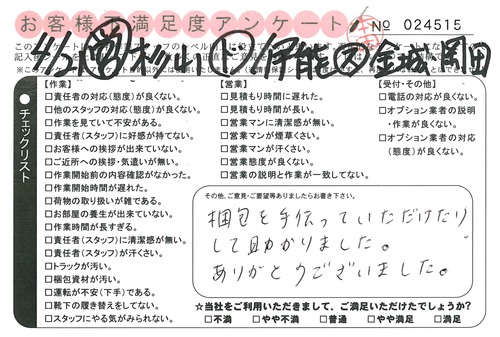 お客様不満足度アンケート
№ 024515
杉山 伊能 金城 岡田
チェックリスト
【作業】
□責任者の対応(態度)が良くない。
□他のスタッフの対応(態度)が良くない。
□作業を見ていて不安がある。
□責任者(スタッフ)に好感が持てない。
□お客様への挨拶が出来ていない。
□ご近所への挨拶・気遣いが無い。
□作業開始前の内容確認がなかった。
□作業開始時間が遅れた。
□荷物の取り扱いが雑である。
□お部屋の養生が出来ていない。
□作業時間が長すぎる。
□責任者(スタッフ)に清潔感が無い。
□責任者(スタッフ)が汗くさい。
□トラックが汚い。
□梱包資材が汚い。
□運転が不安(下手)である。
□靴下の履き替えをしてない。
□スタッフにやる気がみられない。
【営業】
□見積もり時間に遅れた。
□見積もり時間が長い。
□営業マンに清潔感が無い。
□営業マンが煙草くさい。
□営業マンが汗くさい。
□営業態度が良くない。
□営業の説明と作業が一致してない。
【受付・その他】
□電話の対応が良くない。
□オプション業者の説明・作業が良くない。
□オプション業者の対応(態度)が良くない。
その他、ご意見・ご要望等ありましたらお書き下さい。
梱包を手伝っていただけたり
して助かりました。
ありがとうございました。
★当社をご利用いただきまして、ご満足いただけたでしょうか?
□不満 □やや不満 □普通 □やや満足 □満足